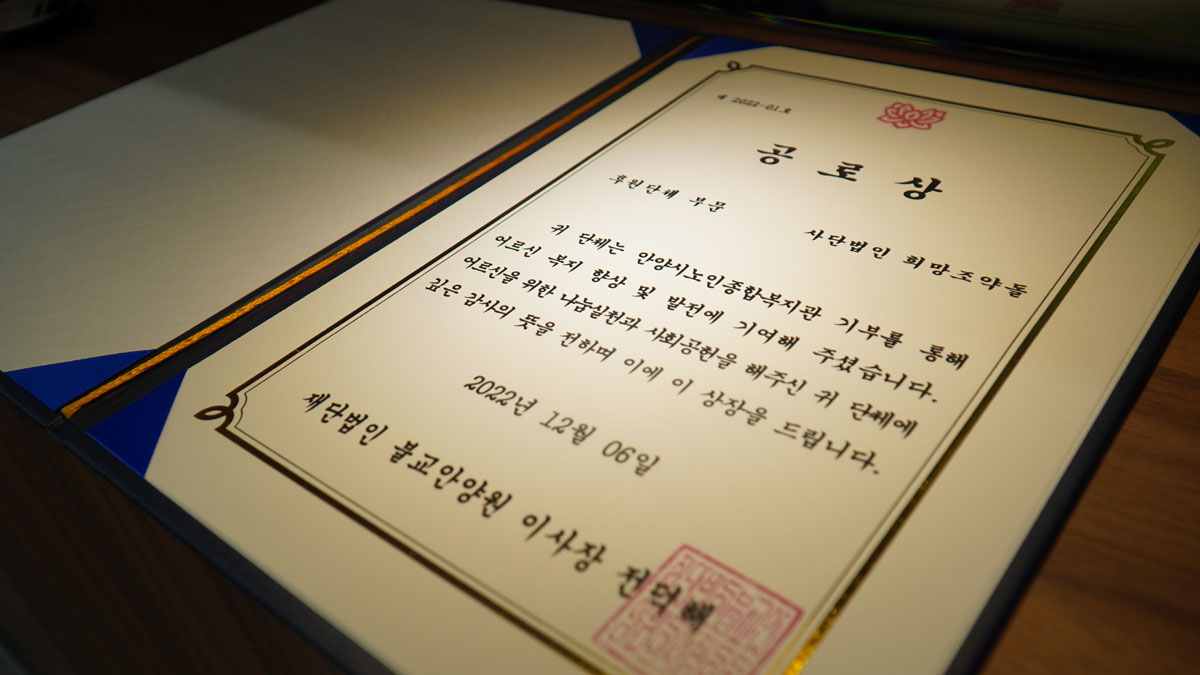 제 2022-01호
공로상
후원단체 부문
사단법인 희망조약돌
귀 단체는 안양시노인종합복지관 기부를 통해
어르신 복지 향상 및 발전에 기여해 주셨습니다.
어르신을 위한 나눔실천과 사회공헌을 해주신 귀 단체에
깊은 감사의 뜻을 전하며 이에 이 상장을 드립니다.
2022년 12월 06일
재단법인 불교안양원 이사장 전덕해